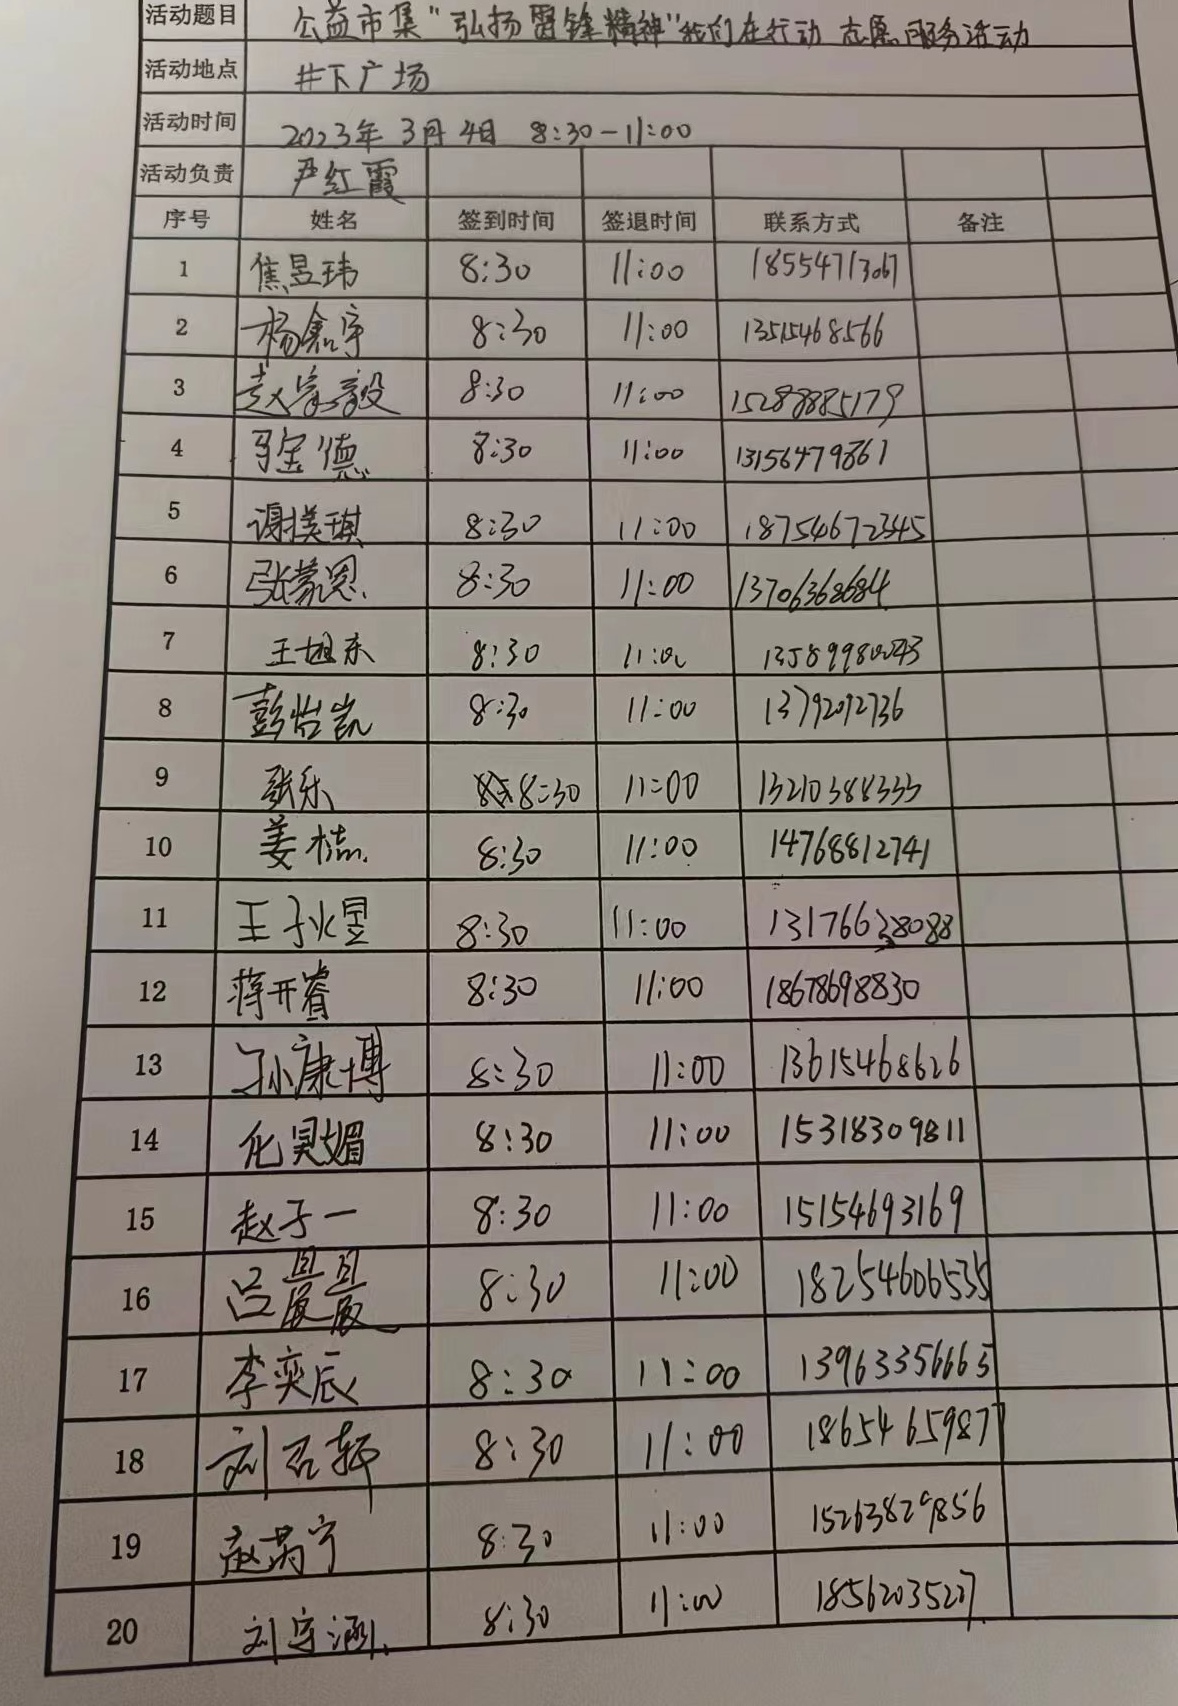 活动题目 公益市集"弘扬雷锋精神"我们在行动 志愿服务活动
活动地点 井下广场
活动时间 2023年3月4日 8:30-11:00
活动负责 尹红霞
序号 姓名 签到时间 签退时间 联系方式 备注
1 焦昱玮 8:30 11:00 18554713067
2 杨鑫宇 8:30 11:00 13515468566
3 赵家毅 8:30 11:00 15288885179
4 马宝德 8:30 11:00 13156479861
5 谢瑛琪 8:30 11:00 18754672345
6 张蒙恩 8:30 11:00 13706368684
7 王旭东 8:30 11:00 13589980043
8 彭怡凯 8:30 11:00 13792092736
9 张乐 8:30 11:00 13210388333
10 姜 8:30 11:00 14768812741
11 王子火昱 8:30 11:00 13176638088
12 蒋开睿 8:30 11:00 18678698830
13 孙康博 8:30 11:00 13615468626
14 化昊媚 8:30 11:00 15318309811
15 赵子一 8:30 11:00 15154693169
16 吕 8:30 11:00 18254606535
17 李奕辰 8:30 11:00 13963356665
18 刘召轩 8:30 11:00 18654659877
19 赵芮宁 8:30 11:00 15263829856
20 刘宇涵 8:30 11:00 18562035227